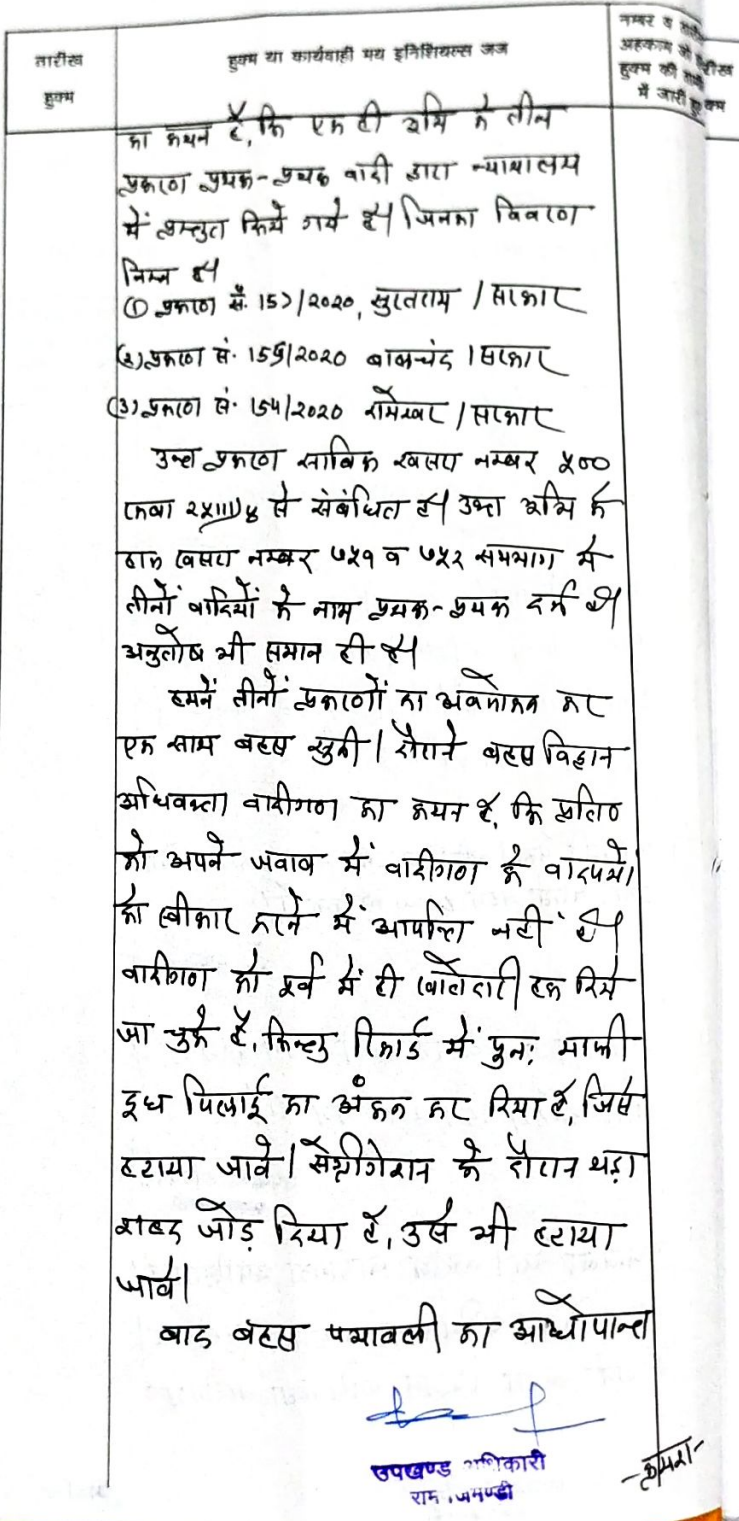 तारीख
हुक्म
हुक्म या कार्यवाही मय इनिशियल्स जज
नम्बर व
अहकाम जो
हुक्म की
में जारी हुए
तारीख
हुक्म
का कथन है, कि एक ही भूमि के तीन
प्रकरण प्रथक-प्रथक वादी द्वारा न्यायालय
में प्रस्तुत किये गये है। जिनका विवरण
निम्न है।
(1) प्रकरण सं. 157/2020, सुरतराम / सरकार
(2) प्रकरण सं. 155/2020 बालचंद / सरकार
(3) प्रकरण सं. 154/2020 रामेश्वर / सरकार
उक्त प्रकरण साबिक खसरा नम्बर ५००
रकबा से संबंधित है। उक्त भूमि के
हाल खसरा नम्बर ७५१ व ७५२ समभाग में
तीनों वादियों के नाम प्रथक-प्रथक दर्ज है।
अनुतोष भी समान ही है।
हमनें तीनों प्रकरणों का अवलोकन कर
एक साथ बहस सुनी। दौराने बहस विद्वान
अधिवक्ता वादीगण का कथन है, कि प्रति०
को अपने जवाब में वादीगण के वादपत्रों
को स्वीकार करने में आपत्ति नहीं है।
वादीगण को पूर्व में ही खातेदारी हक दिये
जा चुके है, किन्तु रिकार्ड में पुनः माफी
दूध पिलाई का अंकन कर दिया है, जिसे
हटाया जावे। सेग्रीगेशन के दौरान थड़ा
शब्द जोड़ दिया है, उसे भी हटाया
जावे।
बाद बहस पत्रावली का आद्योपान्त
उपखण्ड अधिकारी
रामगंजमण्डी
-क्रमश-